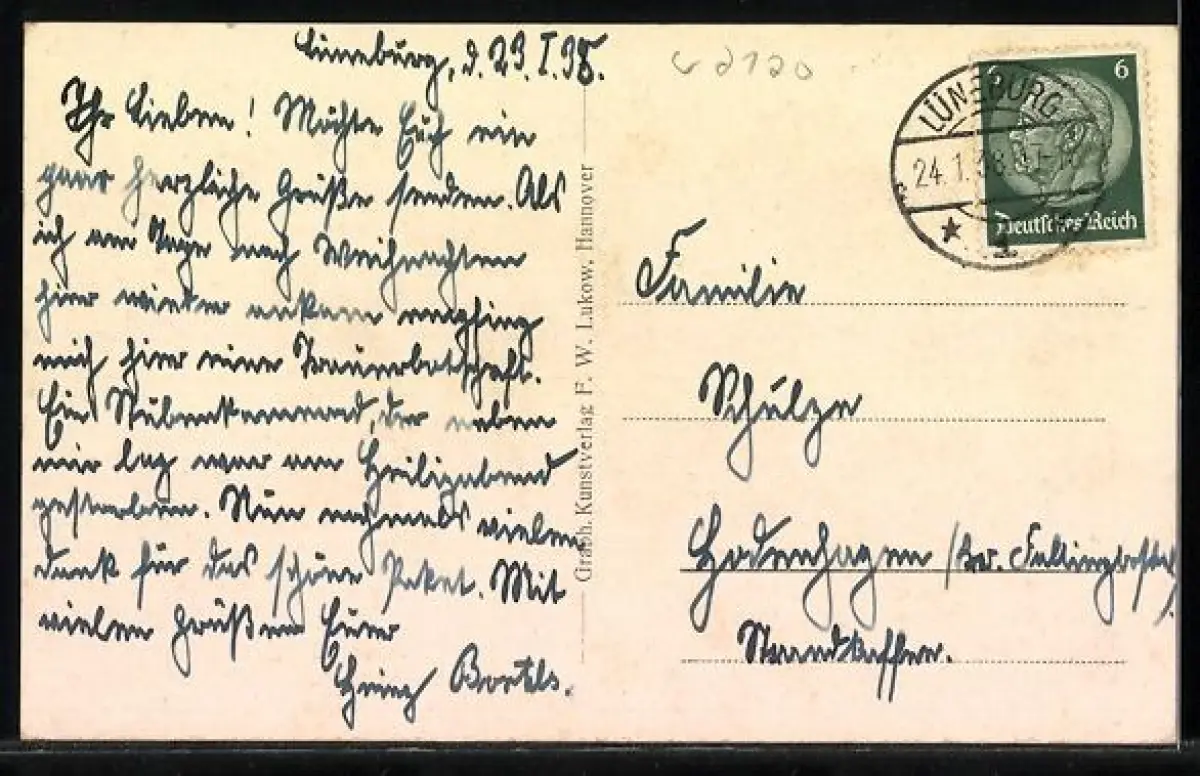 Lüneburg, d. 23. I. 38.
Ihr Lieben! Möchte Euch ein
paar herzliche Grüße senden. Als
ich am Tage nach Weihnachten
hier wieder ankam empfing
mich hier eine Trauerbotschaft.
Ein Stubenkamerad, der neben
mir lag war am Heiligabend
gestorben. Nun nochmals vielen
dank für das schöne Paket. Mit
vielen Grüßen Euer
Heinz Bartels.
Graph. Kunstverlag F. W. Lukow, Hannover
LÜNEBURG
24.1.38
6
Deutsches Reich
Familie
Schulze
Hodenhagen / Kr. Fallingbostel /
Strandkaffee.